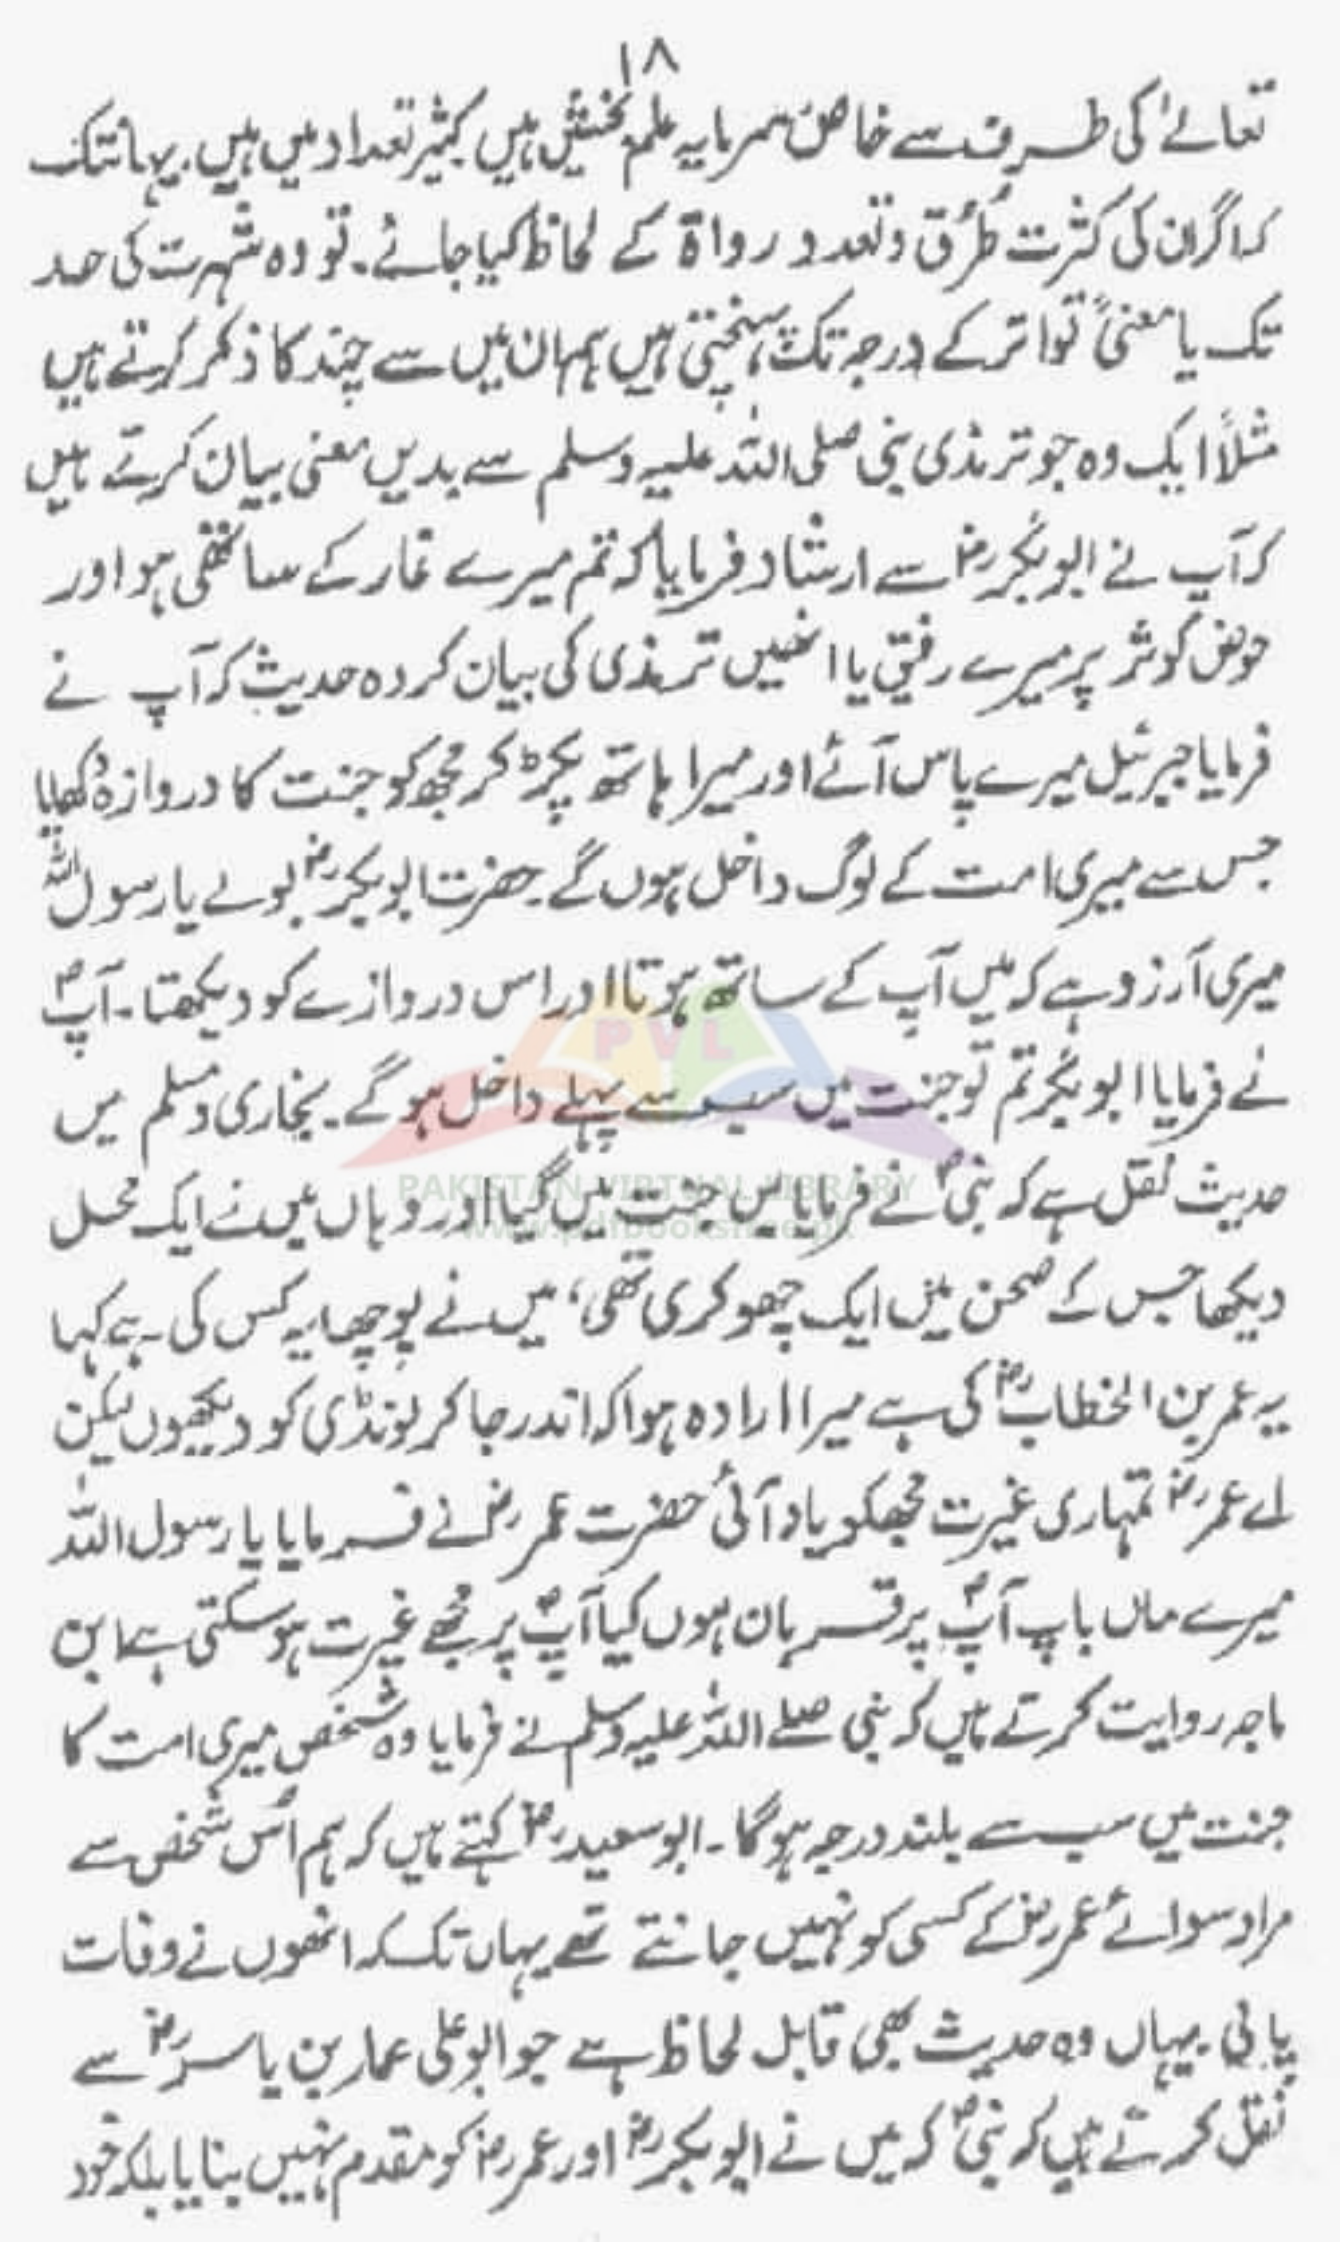 ۱۸
تعالےٰ کی طرف سے خاص سرمایہ علم بخشیں ہیں کثیر تعداد میں ہیں. یہانتک
کہ اگر ان کی کثرت طُرُق و تعدد رواۃ کے لحاظ کیا جائے۔ تو وہ شہرت کی حد
تک یا معنیً تواتر کے درجہ تک پہنچتی ہیں ہم ان میں سے چند کا ذکر کرتے ہیں
مثلاً ایک وہ جو ترمذی نبی صلی اللہ علیہ وسلم سے بدیں معنی بیان کرتے ہیں
کہ آپ نے ابوبکرؓ سے ارشاد فرمایا کہ تم میرے غار کے ساتھی ہو اور
حوض کوثر پر میرے رفیق یا انھیں ترمذی کی بیان کردہ حدیث کہ آپ نے
فرمایا جبرئیل میرے پاس آئے اور میرا ہاتھ پکڑ کر مجھ کو جنت کا دروازہ دکھایا
جس سے میری امت کے لوگ داخل ہوں گے۔ حضرت ابوبکرؓ بولے یا رسول اللہ
میری آرزو ہے کہ میں آپ کے ساتھ ہوتا اور اس دروازے کو دیکھتا۔ آپؐ
نے فرمایا ابوبکر تم تو جنت میں سب سے پہلے داخل ہو گے۔ بخاری و مسلم میں
حدیث نقل ہے کہ نبیؐ نے فرمایا میں جنت میں گیا اور وہاں میں نے ایک محل
دیکھا جس کے صحن میں ایک چھوکری تھی، میں نے پوچھا یہ کس کی ہے کہا
یہ عمر بن الخطابؓ کی ہے میرا ارادہ ہوا کہ اندر جا کر لونڈی کو دیکھوں لیکن
اے عمرؓ تمہاری غیرت مجھکو یاد آئی حضرت عمرؓ نے فرمایا یا رسول اللہ
میرے ماں باپ آپؐ پر قربان ہوں کیا آپؐ پر مجھے غیرت ہو سکتی ہے ابن
ماجہ روایت کرتے ہیں کہ نبی صلے اللہ علیہ وسلم نے فرمایا وہ شخص میری امت کا
جنت میں سب سے بلند درجہ ہوگا۔ ابو سعیدؓ کہتے ہیں کہ ہم اُس شخص سے
مراد سوائے عمرؓ کے کسی کو نہیں جانتے تھے یہاں تک کہ انھوں نے وفات
پائی۔ یہاں وہ حدیث بھی قابل لحاظ ہے جو ابو علی عمار بن یاسرؓ سے
نقل کرتے ہیں کہ نبیؐ کہ میں نے ابوبکرؓ اور عمرؓ کو مقدم نہیں بنایا بلکہ خود
PVL
PAKISTAN VIRTUAL LIBRARY
www.pdfbooksfree.pk